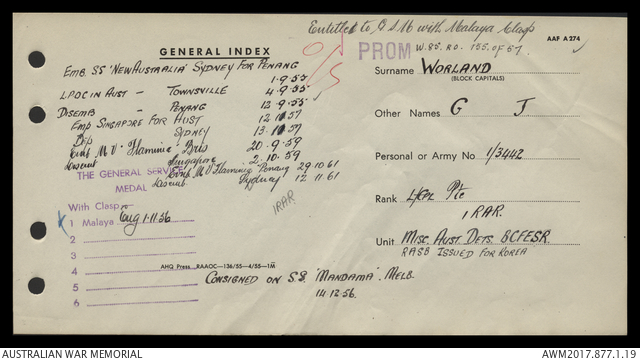 Entitled to G.S.M with Malaya Clasp
W.85. RO. 155. OF 57.
AAF A 274
GENERAL INDEX
PROM
EMB SS 'NEW AUSTRALIA' SYDNEY FOR PENANG
1-9-55
LPOC IN AUST - TOWNSVILLE 4-9-55
DISEMB - PENANG 12-9-55
Emb SINGAPORE FOR AUST 12 57
SYDNEY 13 57
Emb M.V. Flaminia Bris 20.9.59
Disemb Singapore 2.10.59
Emb M.V Flaminia Penang 29 10 61
Disemb. Sydney 12 11 61
1RAR
THE GENERAL SERVICE
MEDAL
With Clasp
1 Malaya 1-11-56
2
3
4
5
6
AHQ Press RAAOC—136/55—4/55—1M
CONSIGNED ON S.S. 'MANDAMA' MELB.
14.12.56.
Surname WORLAND
(BLOCK CAPITALS)
Other Names G J
Personal or Army No 1/3442
Rank L/CPL Pte
1 RAR.
Unit MISC. AUST. DETS. BCFESR.
RASB ISSUED FOR KOREA
AUSTRALIAN WAR MEMORIAL
AWM2017.877.1.19